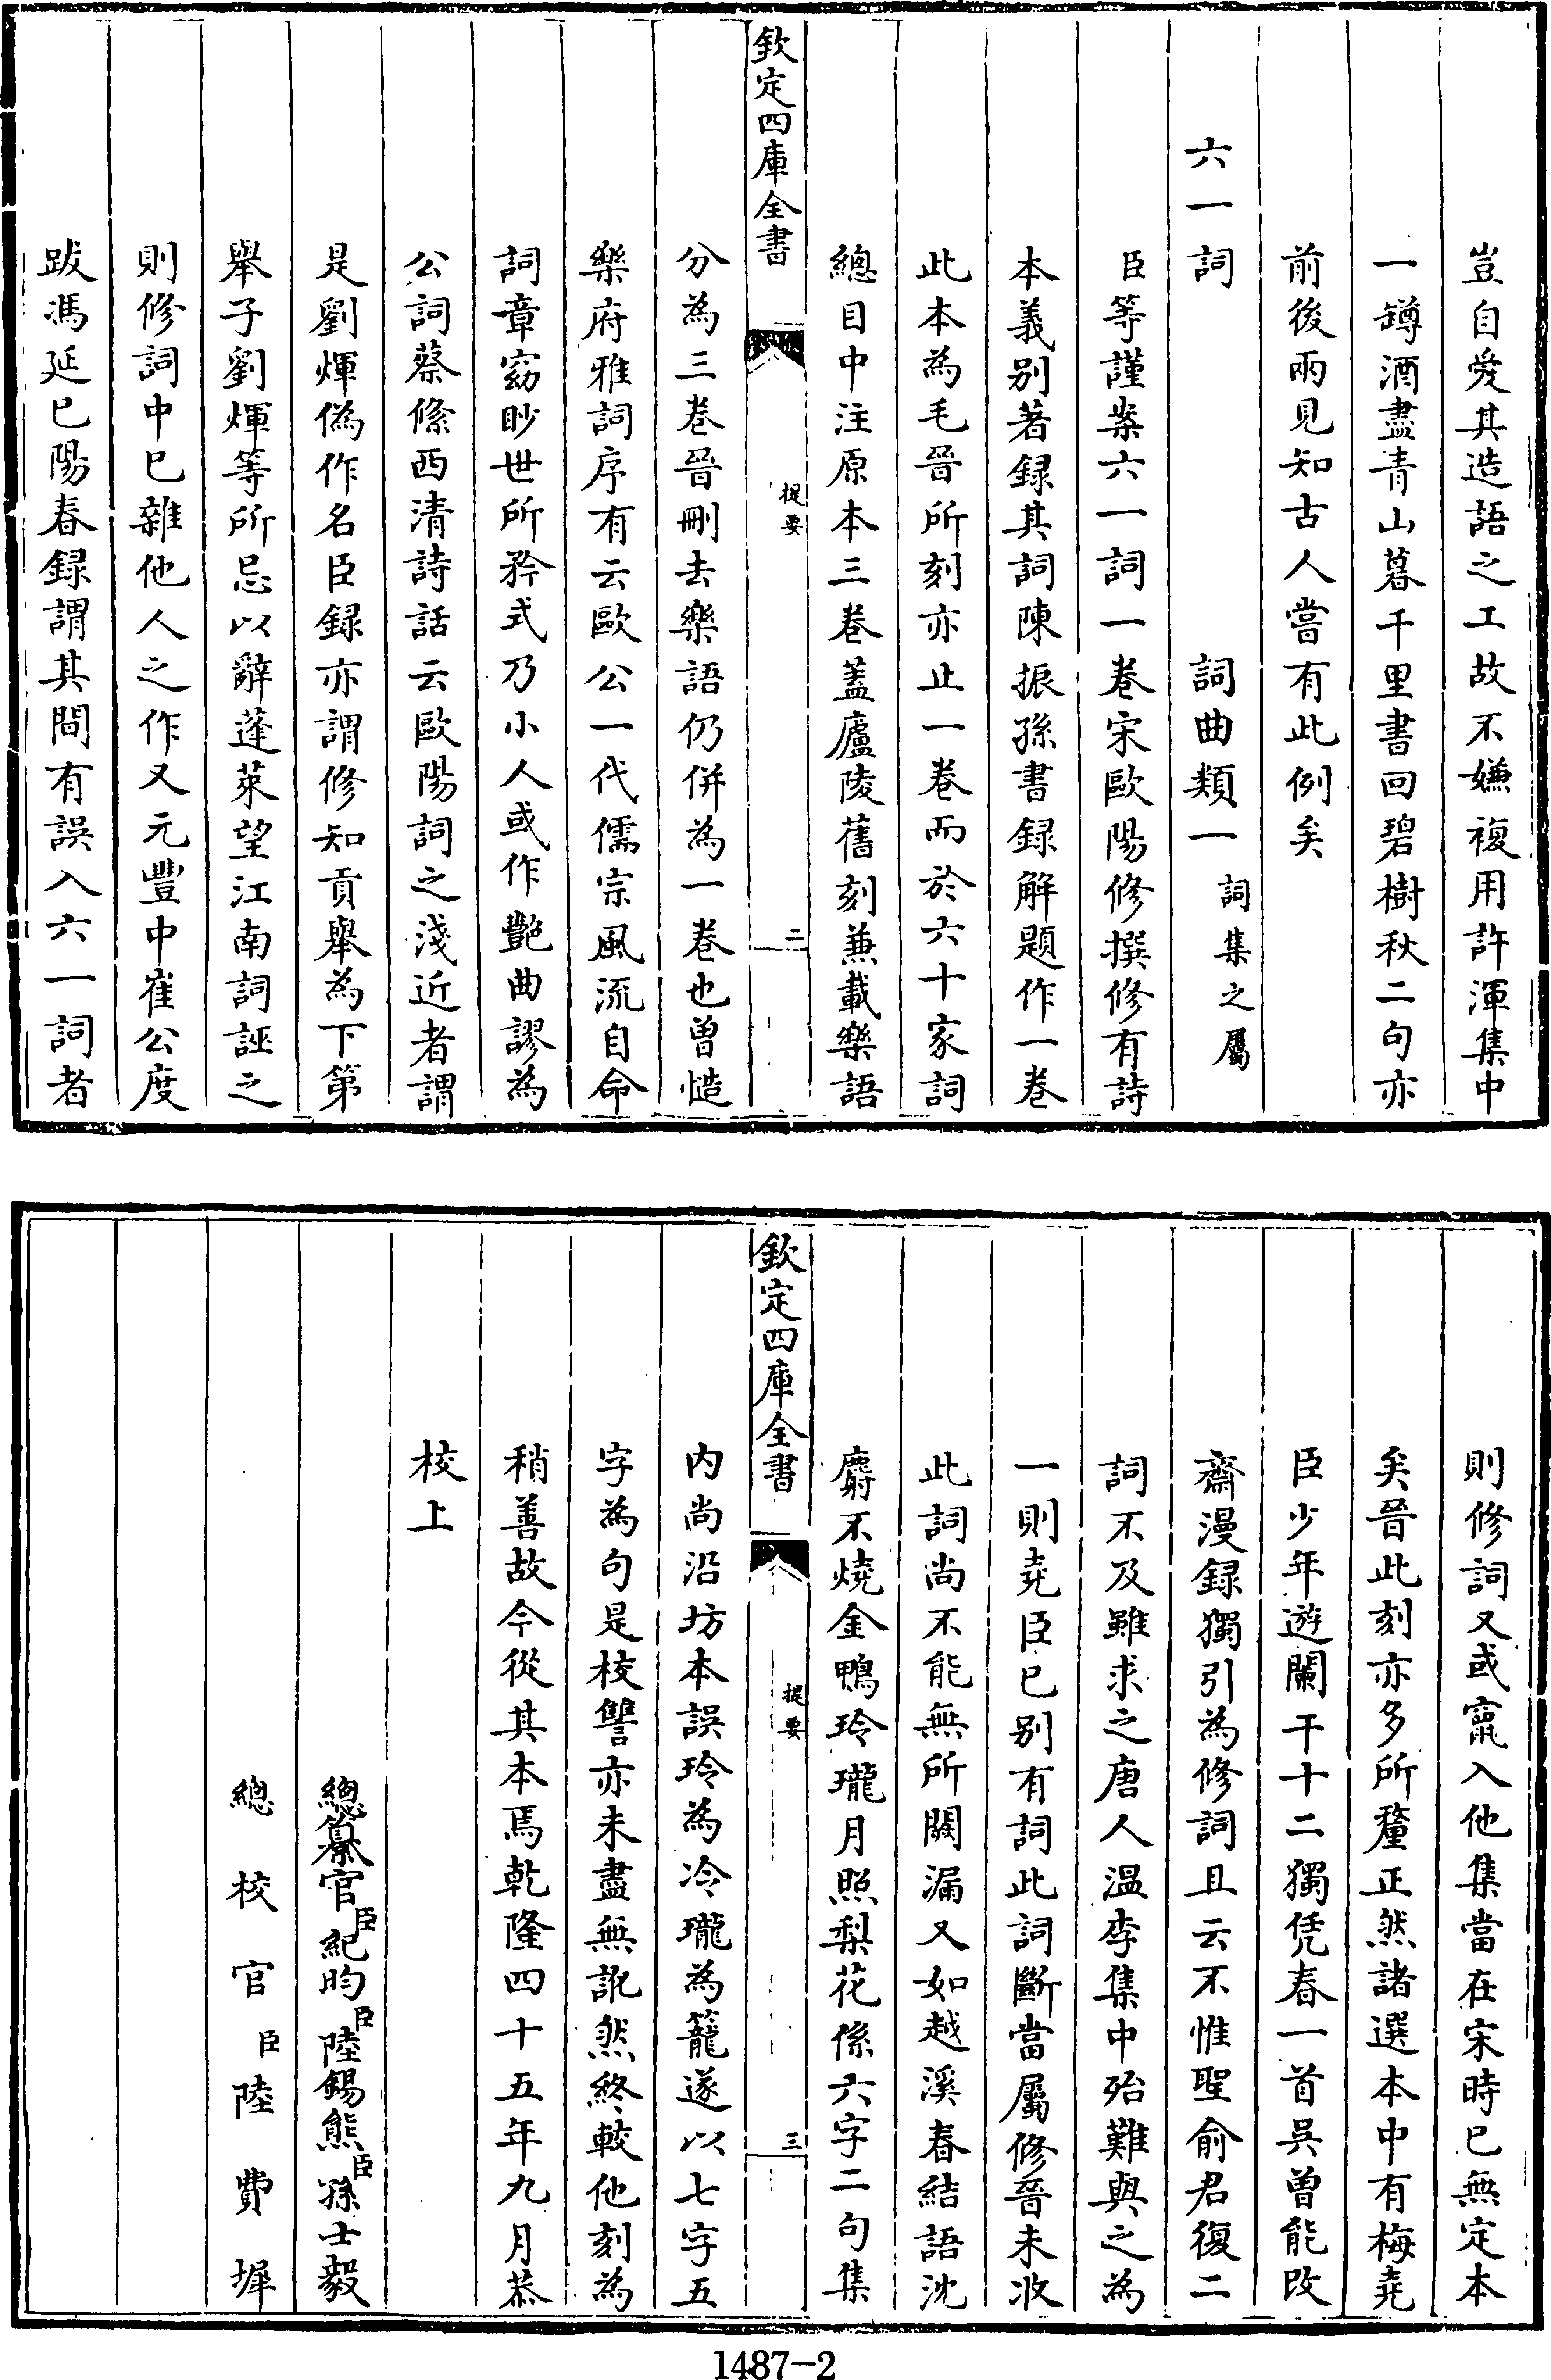 豈自愛其造語之工故不嫌複用許渾集中
一罇酒盡青山暮千里書回碧樹秋二句亦
前後兩見知古人嘗有此例矣
六一詞 詞曲類一 詞集之屬
臣等謹案六一詞一卷宋歐陽修撰修有詩
本義别著録其詞陳振孫書録解題作一卷
此本為毛晉所刻亦止一卷而於六十家詞
總目中注原本三卷蓋廬陵舊刻兼載樂語
欽定四庫全書 提要 二
分為三卷晉刪去樂語仍併為一卷也曽慥
樂府雅詞序有云歐公一代儒宗風流自命
詞章窈眇世所矜式乃小人或作艷曲謬為
公詞蔡絛西清詩話云歐陽詞之淺近者謂
是劉煇偽作名臣録亦謂修知貢舉為下第
舉子劉煇等所忌以辭蓬萊望江南詞誣之
則修詞中已雜他人之作又元豐中崔公度
跋馮延巳陽春録謂其間有誤入六一詞者
則修詞又或竄入他集當在宋時已無定本
矣晉此刻亦多所釐正然諸選本中有梅堯
臣少年遊闌干十二獨凭春一首吳曽能改
齋漫録獨引為修詞且云不惟聖俞君復二
詞不及雖求之唐人温李集中殆難與之為
一則堯臣已别有詞此詞斷當屬修晉未收
此詞尚不能無所闕漏又如越溪春結語沈
麝不燒金鴨玲瓏月照梨花係六字二句集
欽定四庫全書 提要 三
内尚沿坊本誤玲為冷瓏為籠遂以七字五
字為句是校讐亦未盡無訛然終較他刻為
稍善故今從其本焉乾隆四十五年九月恭
校上
總纂官臣紀昀臣陸錫熊臣孫士毅
總校官臣陸費墀
1487-2